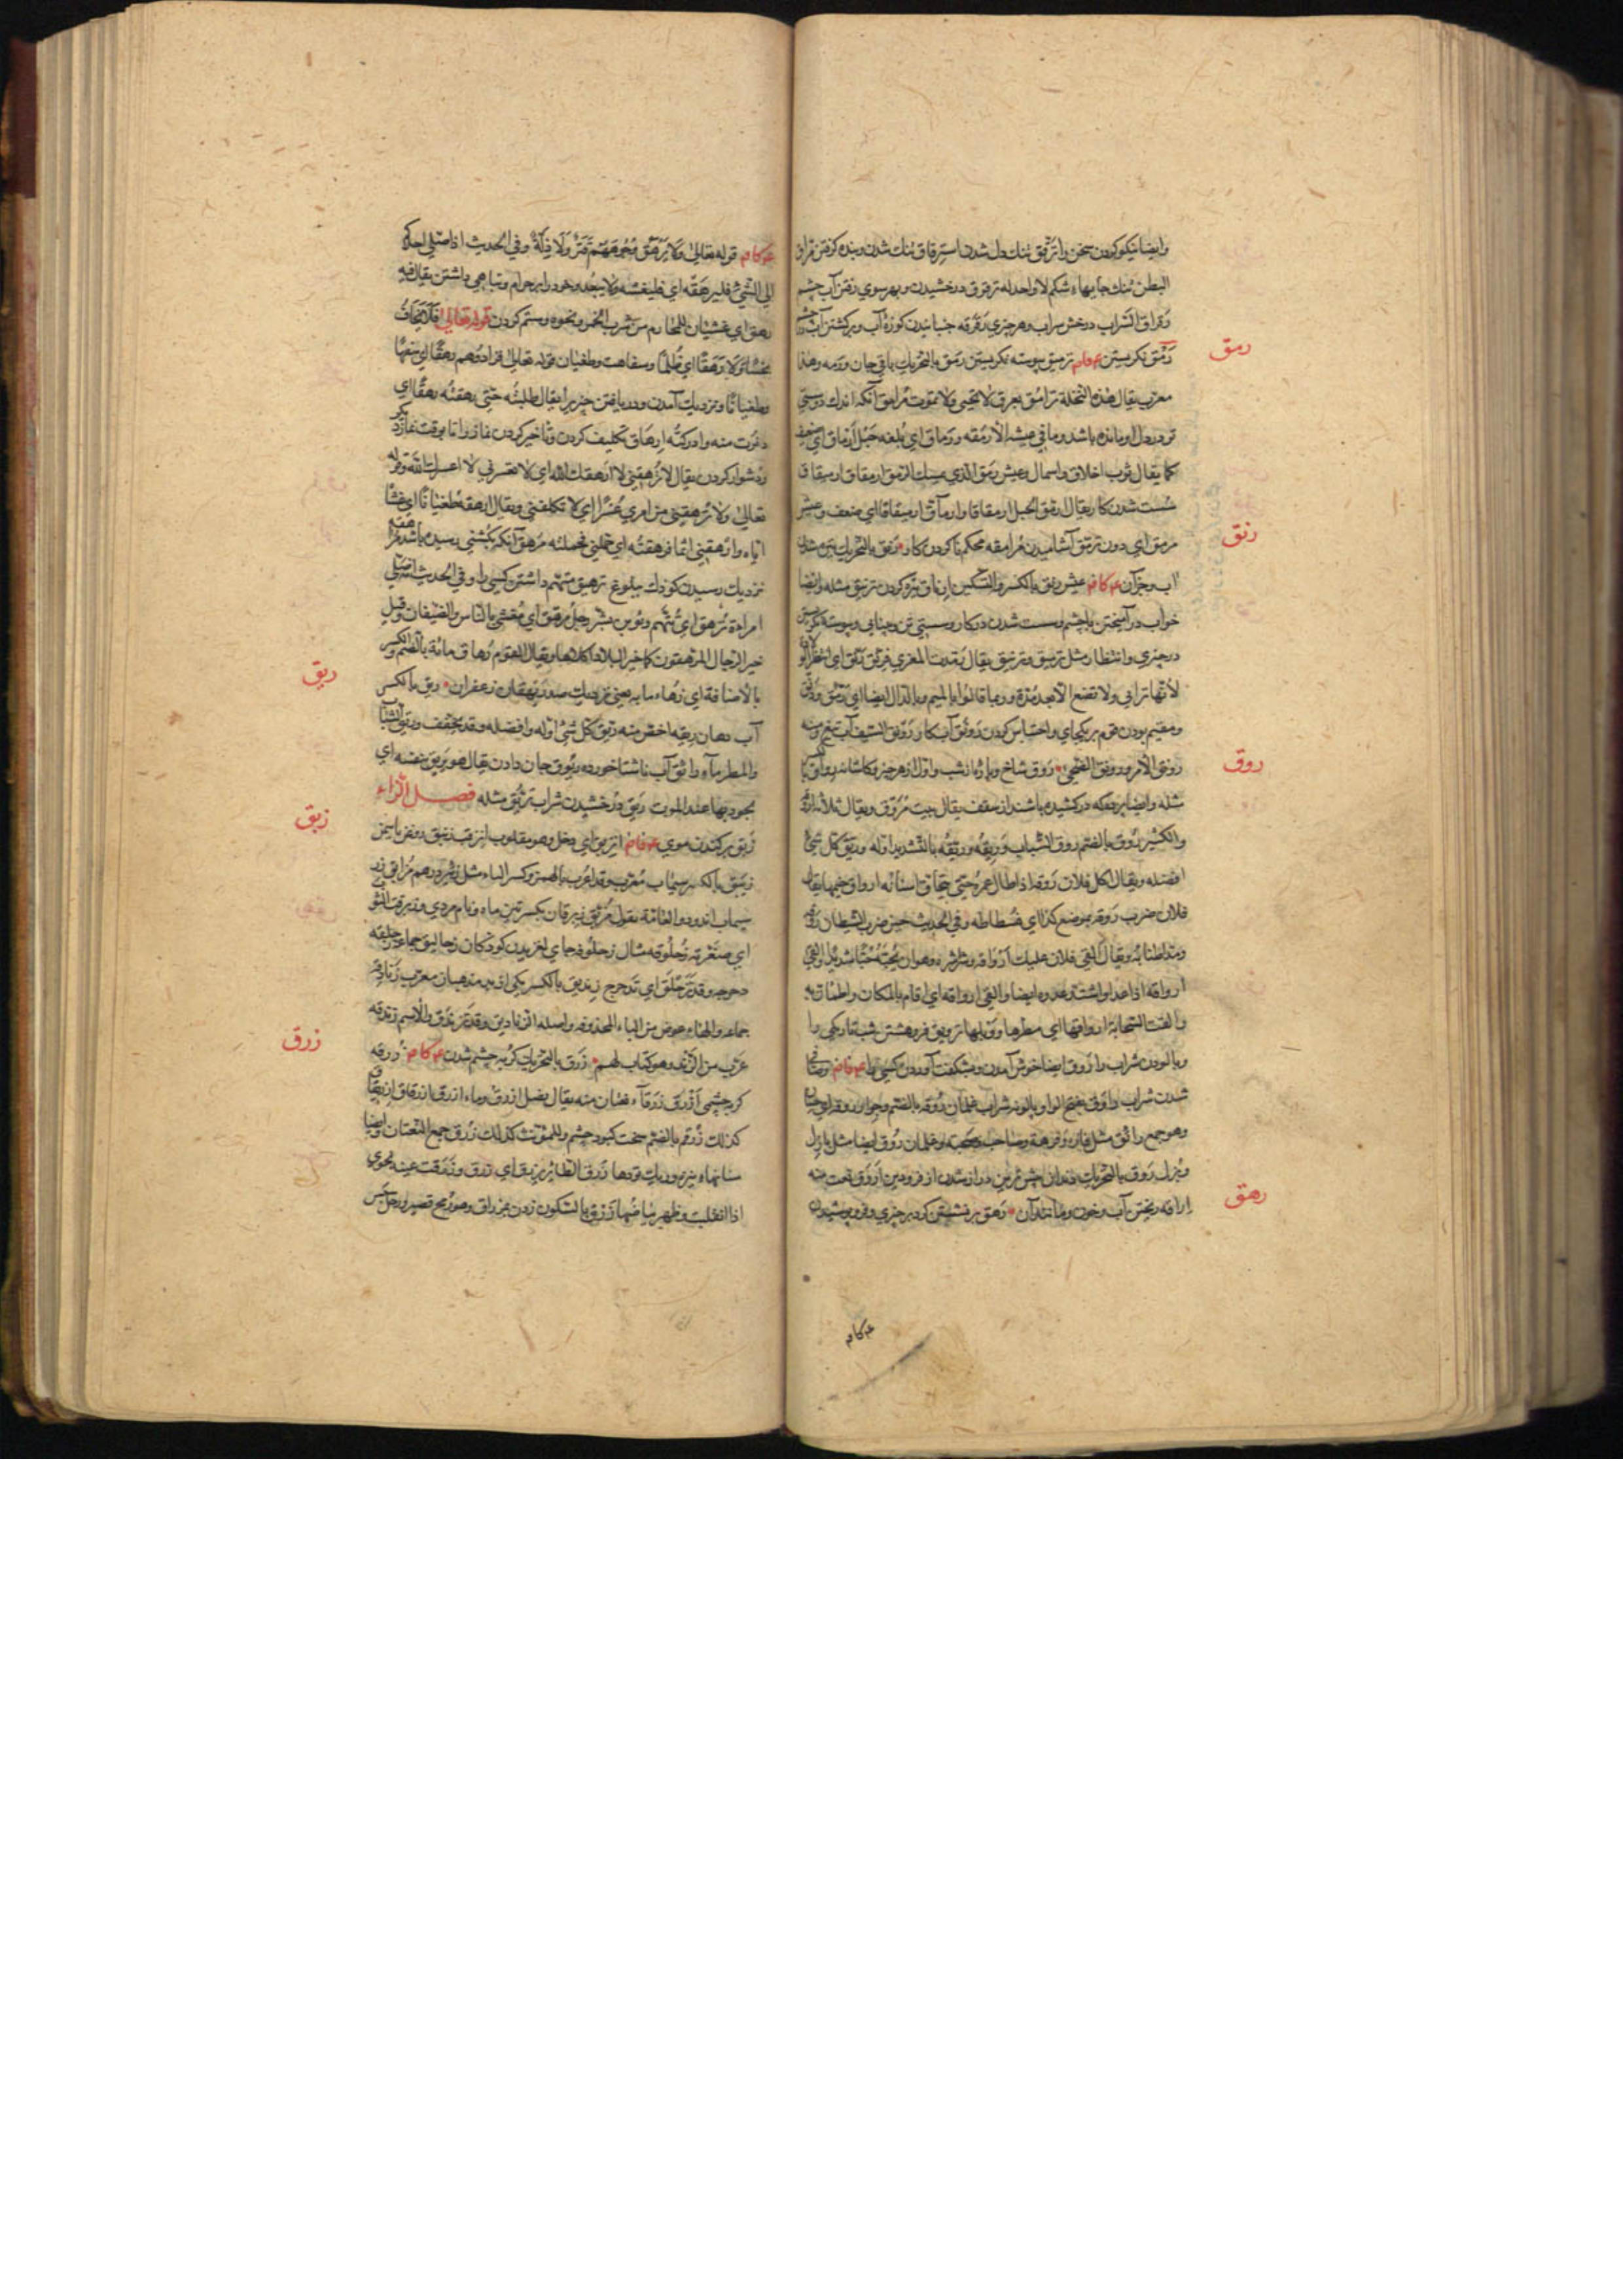 وایضا نیکو کردن سخن را ترقق تنك دل شدن استرقاق تنك شدن و بنده کرفتن مراق
البطن تنك جایهاء شکم لا واحد له ترقرق درخشیدن و بهر سوی رفتن آب چشم
رقراق السراب درخش سراب و هر چیزی رقرقه جنبانیدن کوزه آب و برکشتن آب چشم
رمق
رمق نکریستن ترمیق پیوسته نکریستن رمق بالتحریك باقی جان و رمه وهذا
معرب یقال هذه النخلة ترامق بعرق لا تحیی ولا تموت مرامق آنکه اندك دوستی
تو در دل او مانده باشد وما فی عیشه الا رمقه ورماق ای بلغه حبل ارماق ای ضعیف
کما یقال ثوب اخلاق واسمال وعیش رمق الذی یمسك الرمق ارمقاق ارمیقاق
سست شدن کار یقال ارمق الحبل ارمقاقا وارماق ارمیقاقا ای ضعف وعیش
رنق
مرمق ای دون ترمق آشامیدن مرامقه محکم ناکردن کار رنق بالتحریك تیره شدن
آب و جز آن عیش رنق بالکسر والتسکین ارناق تیره کردن ترنیق مثله وایضا
خواب در آمیختن بچشم وسست شدن در کار وسستی تن وبینایی وپیوسته نکریستن
در چیزی وانتظار مثل ترمیق وترنیق یقال رمدت المعزی فرنق رنق ای انتظر
لانها ترابی ولا تضع الا بعد مدة وربما قالوا بالمیم وبالدال ایضا ای رمق
ومقیم بودن قوم بر یکجای واحتباس کردن رونق آب کار رونق السیف آب تیغ ومنه
روق
رونق الامر ورونق الضحی روق شاخ وپاره از شب واول از هر چیز وکاشانه رواق
مثله وایضا پرده که در کشیده باشند از سقف یقال بیت مروق ویقال ثلاثه اروقه
والکثیر روق بالضم روق الشباب وریقه وریقه بالتشدید اوله وریق کل شیء
افضله ویقال اکل فلان روقه اذا طال عمره حتی تحات اسنانه ارواق خیمها یقال
فلان ضرب روقه بموضع کذا ای فسطاطه وفی الحدیث حین ضرب الشیطان روقه
ومد اطنابه ویقال القی فلان علیك ارواقه وشراشره وهو ان یحبه حبا شدیدا والقی
ارواقه اذا عدا واشتد عدوه ایضا والقی ارواقه ای اقام بالمکان واطمان به
والقت السحابة ارواقها ای مطرها ووبلها ترویق فروهشتن شب تاریکی را
وپالودن شراب را روق ایضا خوش آمدن وبشکفت آوردن کسی را وصافی
شدن شراب راوق بفتح الواو پالونه شراب غلمان روقه بالضم وجوار روقه ای حسان
وهو جمع رائق مثل فاره وفرهة وصاحب وصحبة وغلمان روق ایضا مثل بازل
وبزل روق بالتحریك دندان پیش زبرین دراز شدن از فرودین اروق نعت منه
رهق
اراقه ریختن آب وخون ومانند آن رهق بر نشستن کرد بر چیزی وفرو پوشیدن
قوله تعالی ولا یرهق وجوههم قتر ولا ذلة وفی الحدیث اذا صلی احدکم
الی الشیء فلیرهقه ای فلیغشه ولا یبعد وخود را بر حرام وتباهی داشتن یقال فیه
رهق ای غشیان للمحارم من شرب الخمر ونحوه وستم کردن قوله تعالی فلا یخاف
بخسا ولا رهقا ای ظلما وسفاهت وطغیان قوله تعالی فزادوهم رهقا ای سفها
وطغیانا ونزدیك آمدن ودریافتن چیزی را یقال طلبته حتی رهقته رهقا ای
دنوت منه وادرکته ارهاق تکلیف کردن وتاخیر کردن نماز را تا بوقت نماز دیگر
ودشوار کردن یقال لا ترهقنی لا ارهقك الله ای لا تعسرنی لا اعسرك الله وقوله
تعالی ولا ترهقنی من امری عسرا ای لا تکلفنی ویقال ارهقه طغیانا ای اغشاه
ایاه وارهقنی اثما فرهقته ای حملنی فحملته مرهق آنکه بکشتنی رسیده باشد مراهقه
نزدیك رسیدن کودك ببلوغ ترهیق متهم داشتن کسی را وفی الحدیث انه صلی
امراءة ترهق ای تتهم وتوبن بشر رجل مرهق ای مغشی بالناس والضیفان وقیل
ریق
خیر الرجال المرهقون کما خیر البلاد اکلاها ویقال القوم رهاق مائة بالضم والکسر
بالاضافة ای زهاء مایه یعنی نزدیك صد ریهقان زعفران ریق بالکسر
آب دهان ریقه اخص منه ریق کل شیء اوله وافضله وقد یخفف
والمطر ماء رائق آب ناشتا خورده ریوق جان دادن یقال هو یریق بنفسه ای
یجود بها عند الموت ریق درخشیدن شراب تریق مثله فصل الزاء
زبق
زبق برکندن موی انزبق ای دخل وهو مقلوب انزقب زنبق دوغن یاسمین
زیبق بالکسر سیماب معرب وقد اعرب بالهمز وکسر الباء مثل زئبر درهم مزابق زر
سیماب اندود والعامة تقول مزبق زبرقان بکسرتین ماه ونام مردی وزبرقت الثوب
ای صفرته زحلوقه مثال زحلوفه جای لغزیدن کودکان زحالیق جماعه زحلقه
دحرجه وقد تزحلق ای تدحرج زندیق بالکسر یکی از بد مذهبان معرب زنادقه
زرق
جماعه والهاء عوض من الیاء المحذوفه واصله الزنادیق وقد تزندق والاسم زندقه
عرب من الزند وهو کتاب لهم زرق بالتحریك کربه چشم شدن زرقه
کربه چشمی ازرق زرقاء نعتان منه یقال نصل ازرق وماء ازرق ازرقاق ازریقاق
کذلك زرقم بالضم سخت کبود چشم وللمونث کذلك زرق جمع النعتان وایضا
سنانهاء نیزه وریك تودها زرق الطائر یزرق ای ذرق وزرقت عینه نحوی
اذا انقلبت وظهر بیاضها زرق بالسکون زدن بمزراق وهو رمح قصیر ورجل